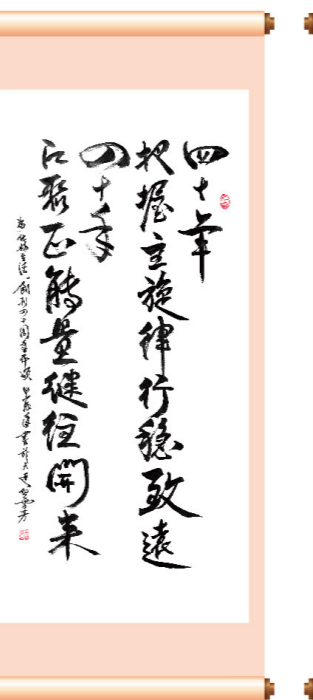 四十年
把握主旋律行稳致遠
四十年
汇聚正能量继往開来
创刊四十周年